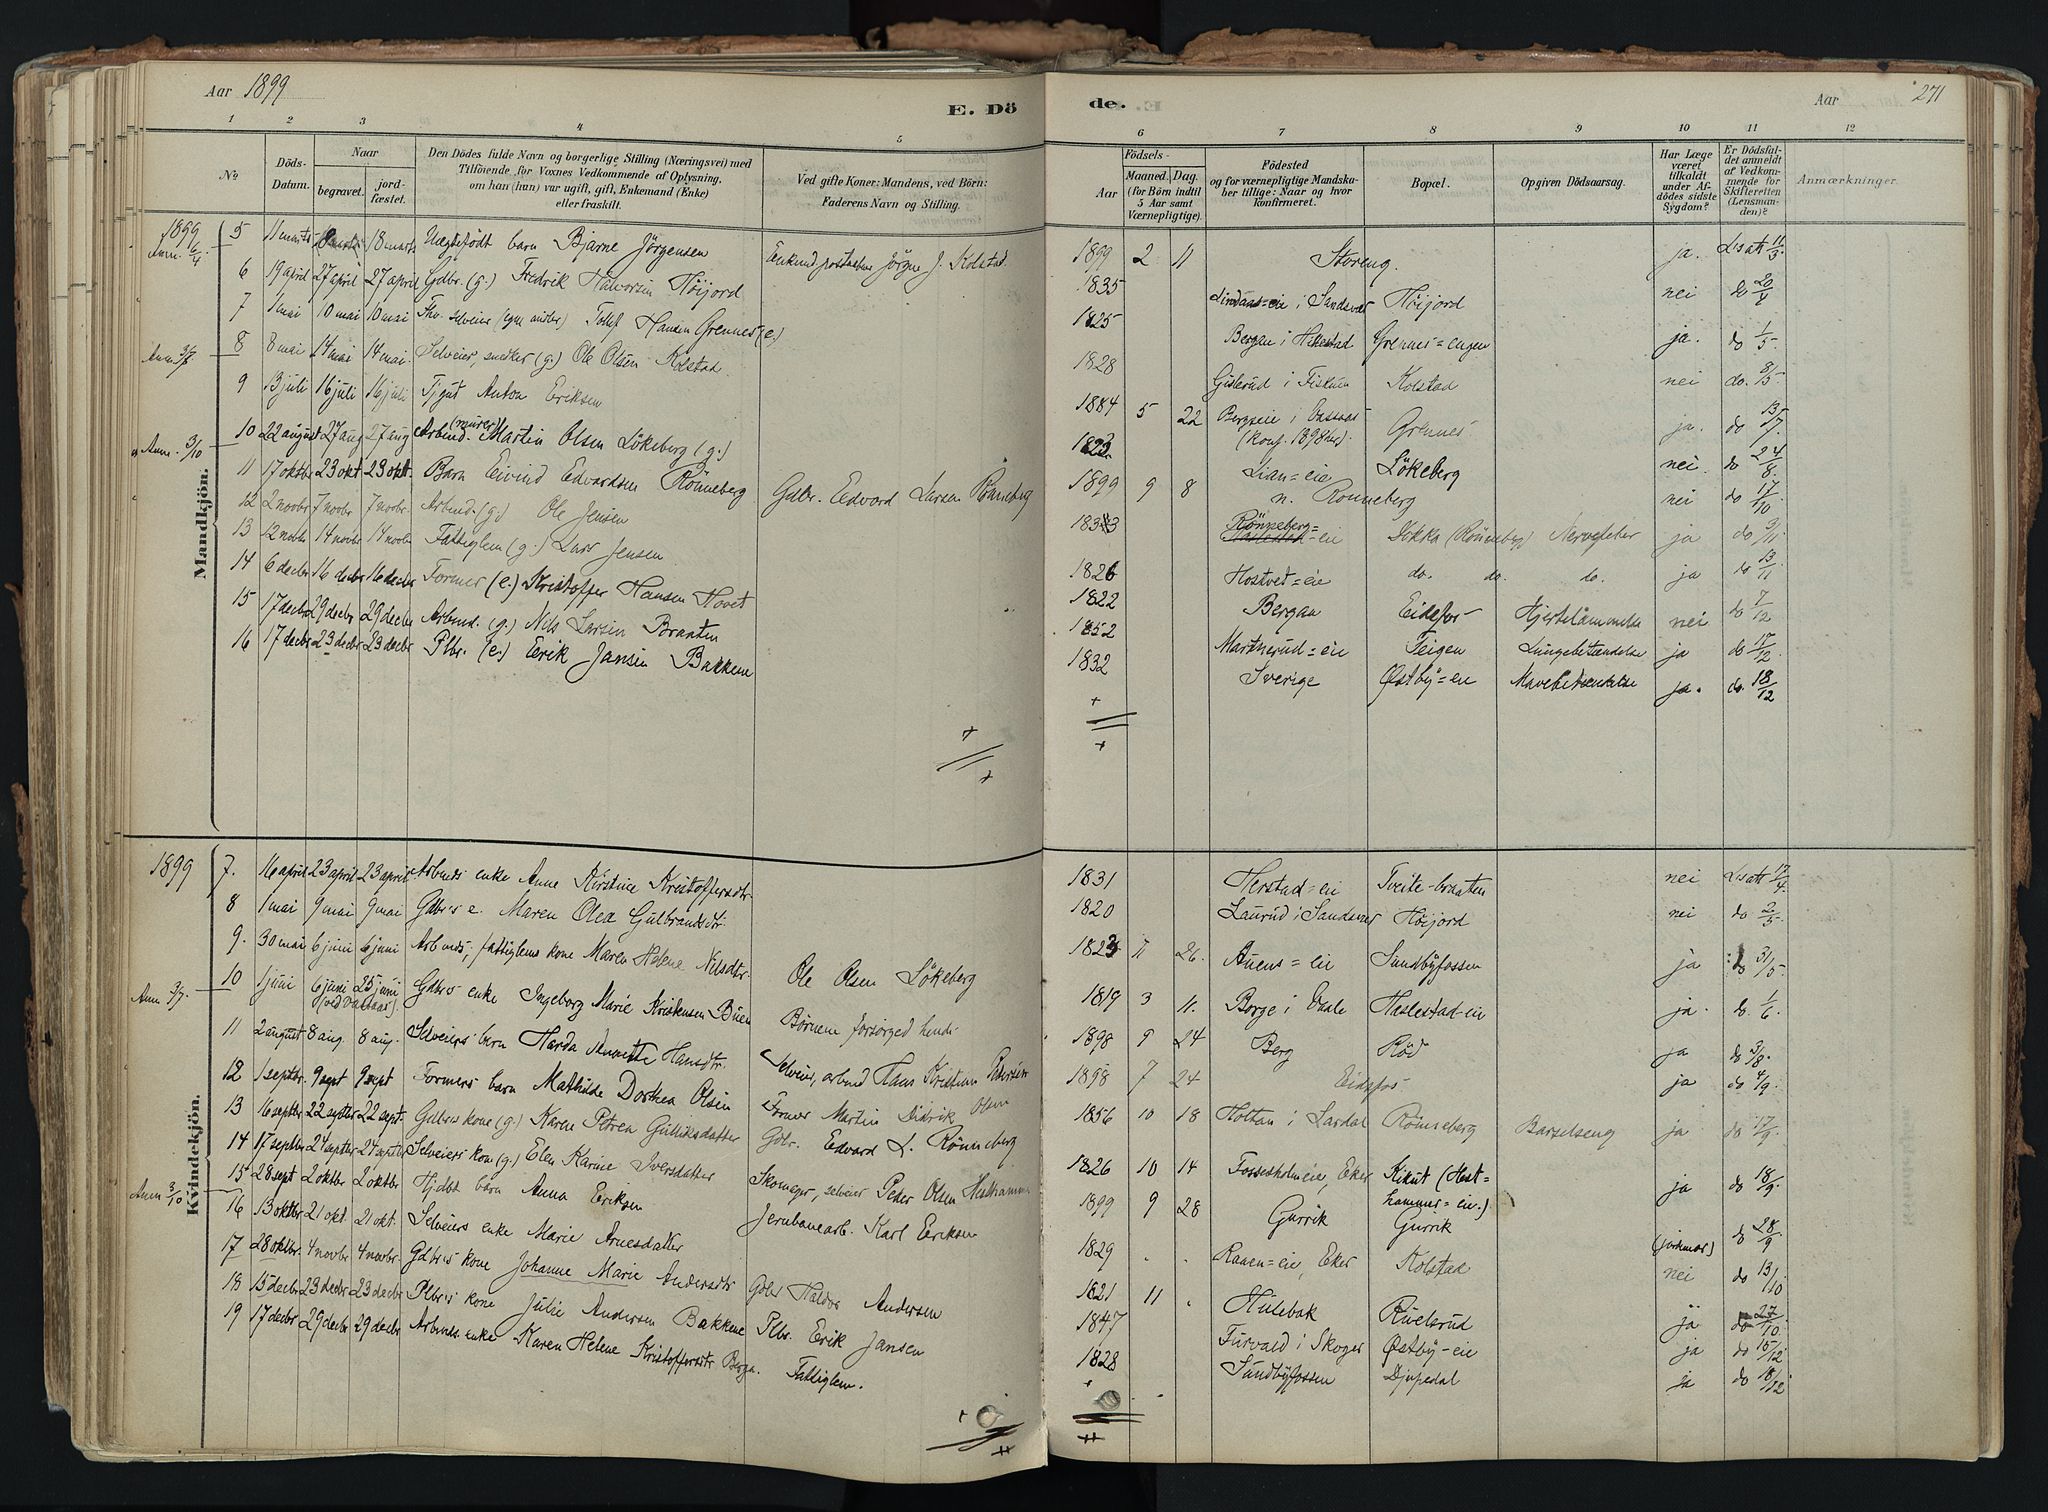 Aar 1899
E. Dö
de.
Aar
271
1 2 3 4 5 6 7 8 9 10 11 12
No
Döds-Datum.
Naar
begravet.
jord-fæstet.
Den Dödes fulde Navn og borgerlige Stilling (Næringsvei) med
Tilföiende for Voxnes Vedkommende af Oplysning,
om han (hun) var ugift, gift, Enkemand (Enke)
eller fraskilt.
Ved gifte Koner: Mandens, ved Börn:
Faderens Navn og Stilling.
Födsels-
Aar
Maaned. Dag.
(for Börn indtil
5 Aar samt
Værnepligtige).
Födested
og for værnepligtige Mandska-
ber tillige: Naar og hvor
konfirmeret.
Bopæl.
Opgiven Dödsaarsag.
Har Læge
været
tilkaldt
under Af-
dödes sidste
Sygdom?
Er Dödsfal-
det anmeldt
af Vedkom-
mende for
Skifteretten
(Lensman-
den)?
Anmærkninger.
Mandkjön.
1899
Anm. 6/4
5 11 marts 18 marts Uegtefödt barn Bjarne Jörgensen Jörgen J. Kolstad 1899 2 11 Storeng ja. Lsatt 11/3
6 19 april 27 april 27 april Gdbr. (g.) Fredrik Halvorsen Höijord 1835 Lindaas=eie i Sandsvær Höijord nei do 20/4
7 1 mai 10 mai 10 mai Fhv. selveier Hansen Grennes (e.) 1825 Bergan i Hikestad Grennes=engen ja. do 1/5
Anm. 3/7
8 8 mai 14 mai 14 mai Selveier, snedker (g.) Ole Olsen Kolstad 1828 Gislerud i Fiskum Kolstad nei do. 8/5
9 13 juli 16 juli 16 juli Tjgut Anton Eriksen 1884 5 22 (konf. 1898 her). Grennes ja. do 13/7
Anm. 3/10
10 22 august 27 aug 27 aug Arbmd. (murer) Martin Olsen Lökeberg (g.) 1823 Lian=eie Lökeberg nei. do 24/8
11 17 oktbr 23 okt 23 okt. Barn Eivind Edvardsen Rönneberg Gdbr. Edvard Larsen Rönneberg 1899 9 8 n. Rönneberg nei do 17/10
12 2 novbr 7 novbr 7 novbr. Arbmd. (g.) Ole Jensen 1833 Rönneberg=eie (Rönneberg) Nervefeber ja do 9/11
13 12 novbr 14 novbr 14 novbr Fattiglem (g.) Lars Jensen 1826 Hostvet=eie do. do. do. ja do 13/11
14 6 decbr 16 decbr 16 decbr Former (e.) Kristoffer Hansen Hovet 1822 Bergan Eidsfos Hjertelammelse nei do 7/12
15 17 decbr 29 decbr 29 decbr Arbmd. (g.) Nils Larsen Braaten 1852 Martnerud=eie Teigen Lungebetændelse ja do 17/12
16 17 decbr 23 decbr 23 decbr Plbr. (e.) Erik Jansen Bakkene 1832 Sverige Østby=eie Mavebetændelse ja. do. 18/12
Kvindekjön.
1899
7. 16 april 23 april 23 april Arbmds enke Anne Kirstine Kristoffersdtr 1831 Herstad=eie Tveite-braaten nei Lsatt 17/4
8 1 mai 9 mai 9 mai Gdbr's e. Maren Olea Gulbrandsdtr. 1820 Laurud i Sandsvær Höijord nei do 2/5
9. 30 mai 6 juni 6 juni Arbmds, fattiglems kone Maren Helene Nilsdtr. Ole Olsen Lökeberg 1823 11 26. Auens=eie Sundbyfossen ja do 31/5
Anm 3/7.
10 1 juni 6 juni 25 juni Gdbr's enke Ingeborg Marie Kristensen Buen Börnene forsörged hende. 1819 3 11. Borge i Vaale Haslestad-eie ja. do. 1/6
11 2 august 8 aug. 8 aug. Selveiers barn Harda Annette Hansdtr. Selveier, arbmd Hans Kristian Pedersen 1898 9 24 Berg Röd ja do 3/8
12 1 septbr. 9 sept 9 sept Formers barn Mathilde Dorthea Olsen Former Martin Didrik Olsen 1898 7 24 Eidsfos ja do 4/9
13 16 septbr 22 septbr 22 sept. Gdbr's kone (g.) Karen Petrea Gulliksdatter Gdbr. Edvard L. Rönneberg 1856 10 18 Holtan i Lardal Rönneberg Barselseng ja do 17/9
14 17 septbr 24 septbr 24 septbr Selveiers kone (g.) Elen Karine Iversdatter Skomager, selveier Peder Olsen Hesthammer 1826 10 14 Fossesholm=eie, Eker Kikut (Hest=hammer=eie.) ja do 18/9
Anm 3/10
15 28 sept 2 oktbr 2 oktbr Hjdöbt barn Anna Eriksen Jernbanearb. Karl Eriksen 1899 9 28 Gurrik Gurrik (jordmor) do 28/9
16 13 oktbr 21 okt. 21 okt. Selveiers enke Marie Arnesdatter 1829 Raaen=eie, Eker Kolstad nei do 13/10
17 28 oktbr. 4 novbr 4 novbr. Gdbr's kone Johanne Marie Andersdtr Gdbr Haldor Andersen 1821 11 Hulebak Ruelsrud ja do 27/10
18 15 decbr 23 decbr 23 decbr Plbr's kone Julie Andersen Bakkene Plbr. Erik Jansen 1847 Furvald i Skoger Østby-eie ja do 15/12
19 17 decbr 29 decbr 29 decbr Arbmds. enke Karen Helene Kristoffersdtr Bergn. Fattiglem. 1828 Sundbyfossen Djupedal ja do 18/12